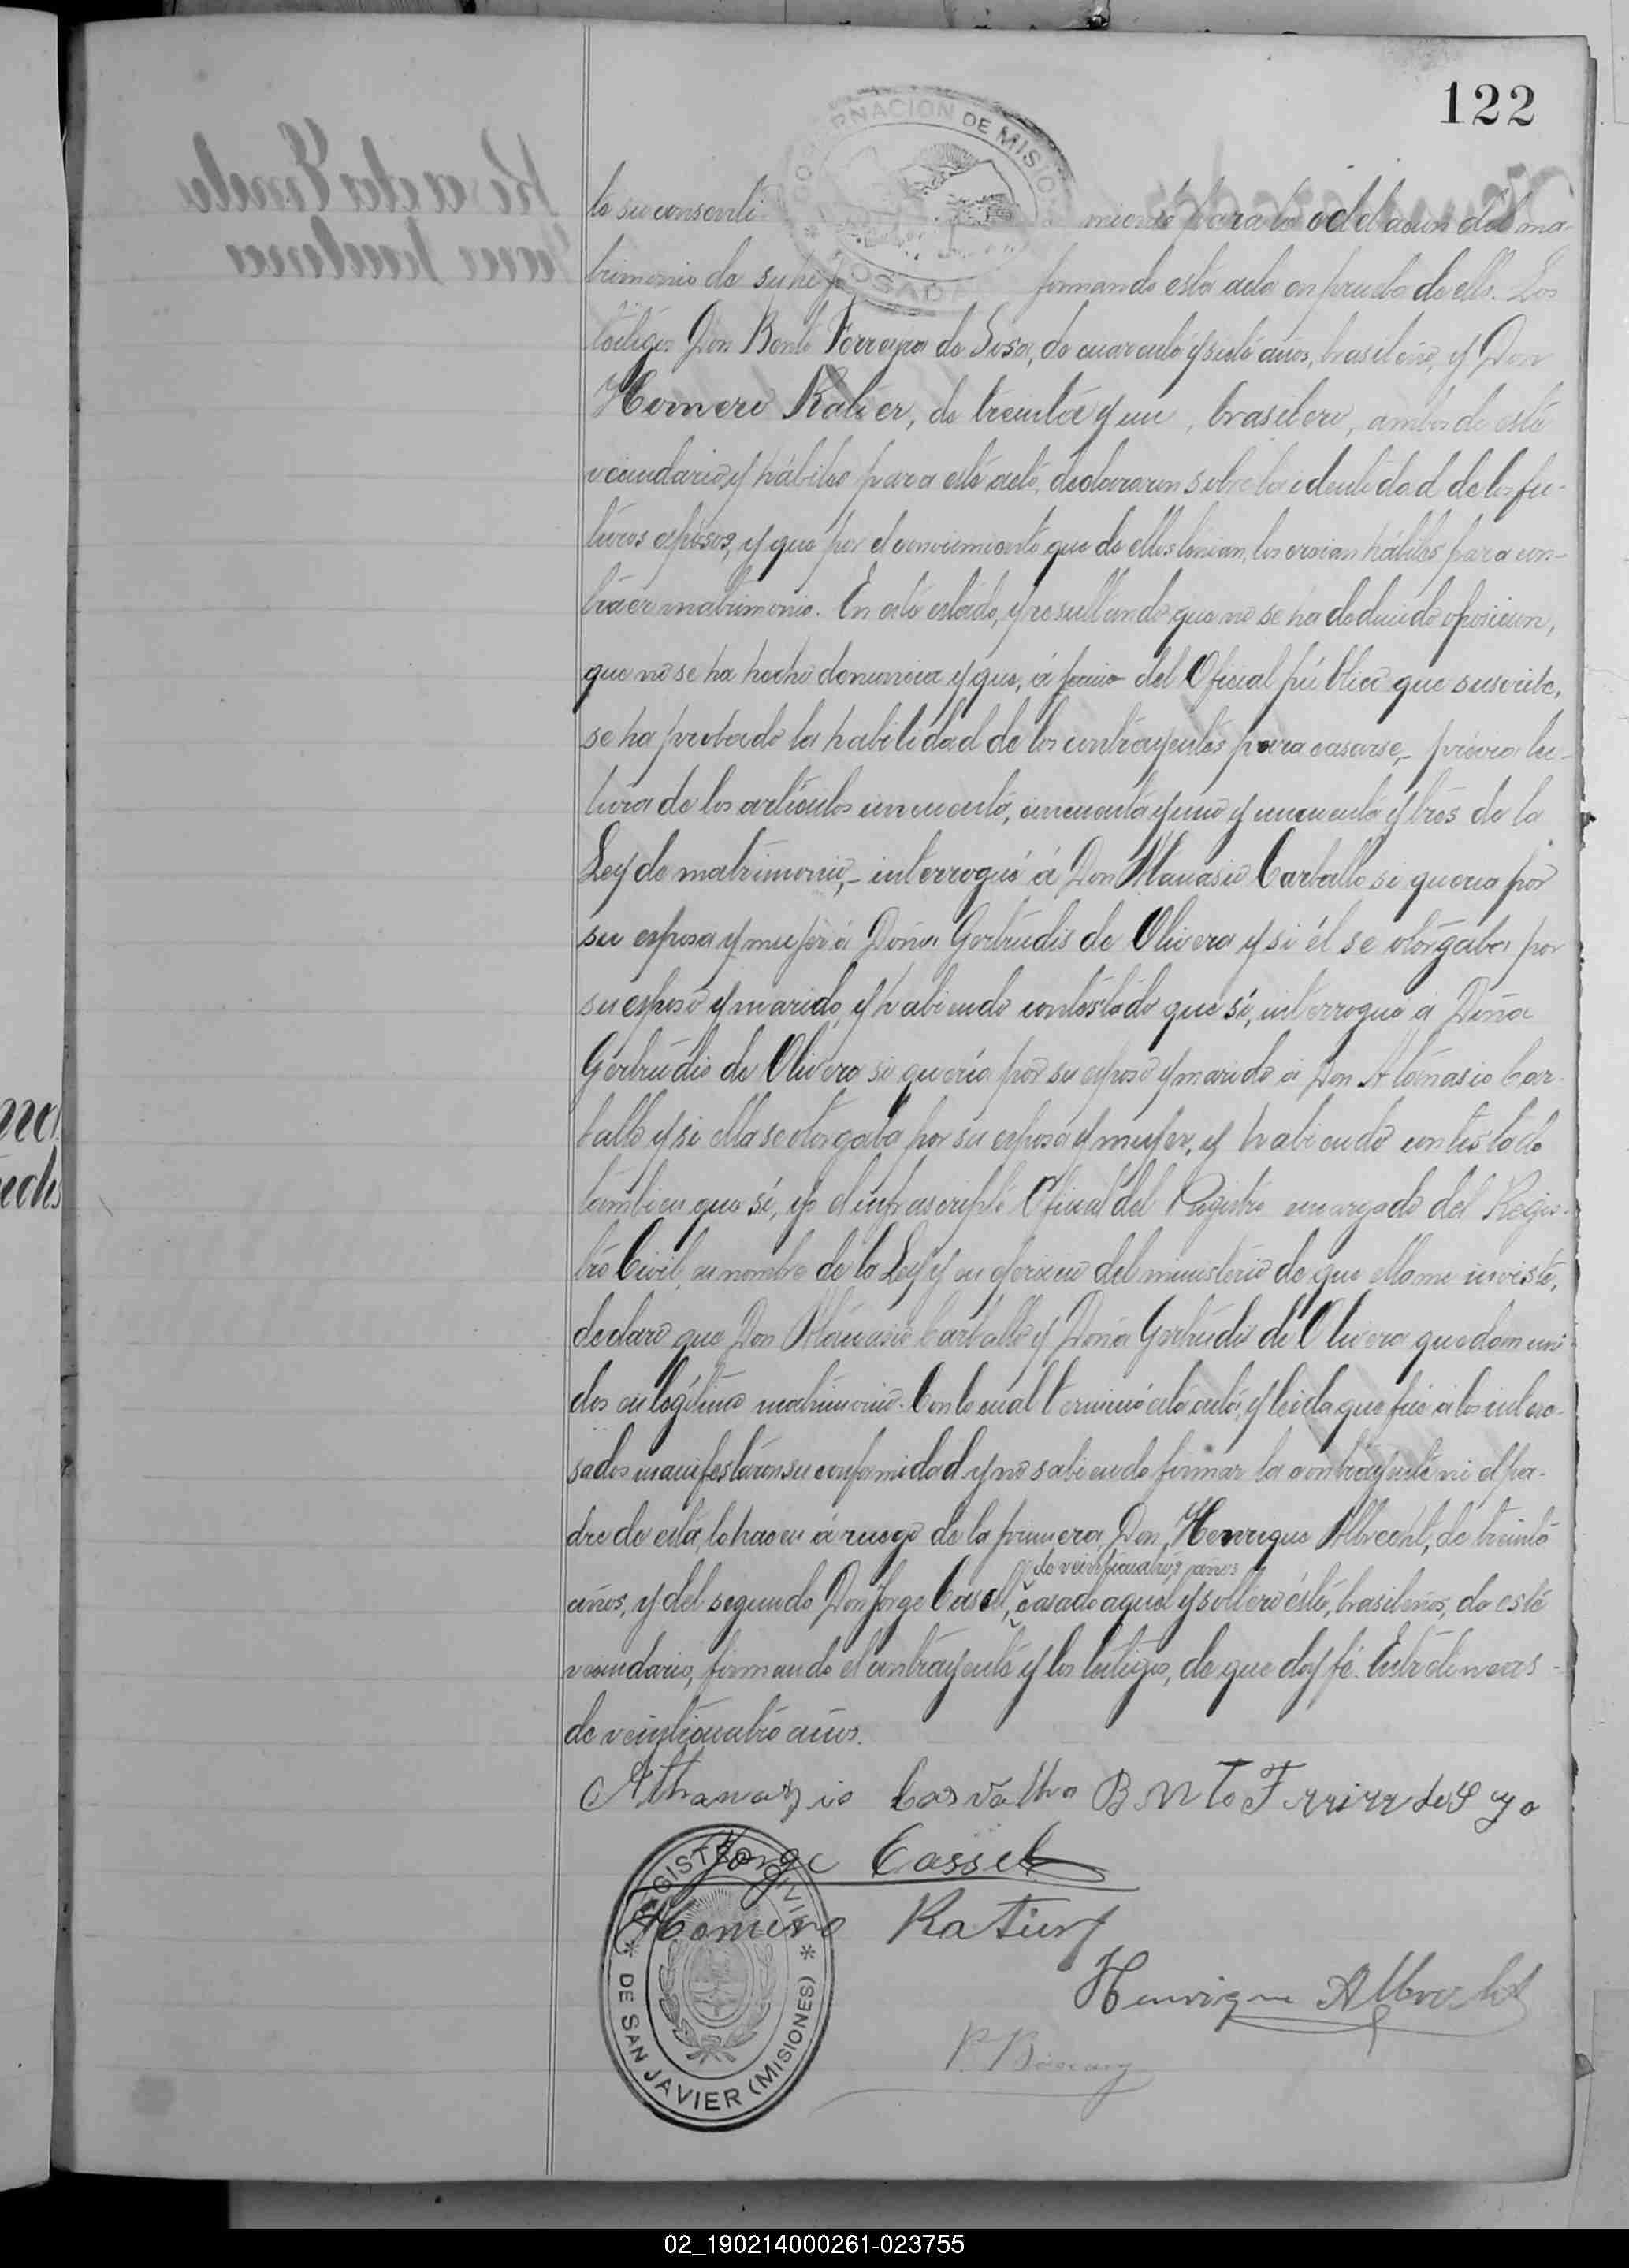 122
GOBERNACION DE MISIONES
* POSADAS
to su consenti miento para la celebracion del ma-
trimonio de su hija firmando esta acta en prueba de ello. Los
testigos Don Bento Ferreyra de Sosa, de cuarenta y siete años, brasilero, y Don
Homero Ratier, de treinta y un, brasilero, ambos de este
vecindario y hábiles para este acto, declararon sobre la identidad de los fu-
turos esposos, y que por el conocimiento que de ellos tenian, los creian hábiles para con-
traer matrimonio. En este estado, y resultando que no se ha deducido oposicion,
que no se ha hecho denuncia y que, á juicio del Oficial público que suscribe,
se ha probado la habilidad de los contrayentes para casarse,- prévia lec-
tura de los artículos cincuenta, cincuenta y uno y cincuenta y tres de la
Ley de matrimonio,- interrogué á Don Atanasio Carballo si queria por
su esposa y mujer á Doña Gertrudis de Olivera y si él se otorgaba por
su esposo y marido, y habiendo contestado que sí, interrogué á Doña
Gertrudis de Olivera si quería por su esposo y marido á Don Atanasio Car-
ballo y si ella se otorgaba por su esposa y mujer, y habiendo contestado
tambien que sí, yo el infrascripto Oficial del Registro encargado del Regis-
tro Civil, en nombre de la Ley y en ejercicio del ministerio de que ella me inviste,
declaro que Don Atanasio Carballo y Doña Gertrudis de Olivera quedan uni-
dos en legítimo matrimonio. Con lo cual terminó este acto, y leida que fué á los intere-
sados manifestaron su conformidad y no sabiendo firmar la contrayente ni el pa-
dre de esta, lo hacen á ruego de la primera, Don Henrique Albrecht, de treinta
de veinticuatro años
años, y del segundo Don Jorge Cassel, casado aquel y soltero éste, brasileños, de este
vecindario, firmando el contrayente y los testigos, de que doy fé. Entre lineas -
de veinticuatro años.
Athanazio Carvalho Bnto
Jorge Cassel
Homero Ratier
Henrique Albrecht
REGISTRO CIVIL
* DE SAN JAVIER (MISIONES) *
02_190214000261-023755